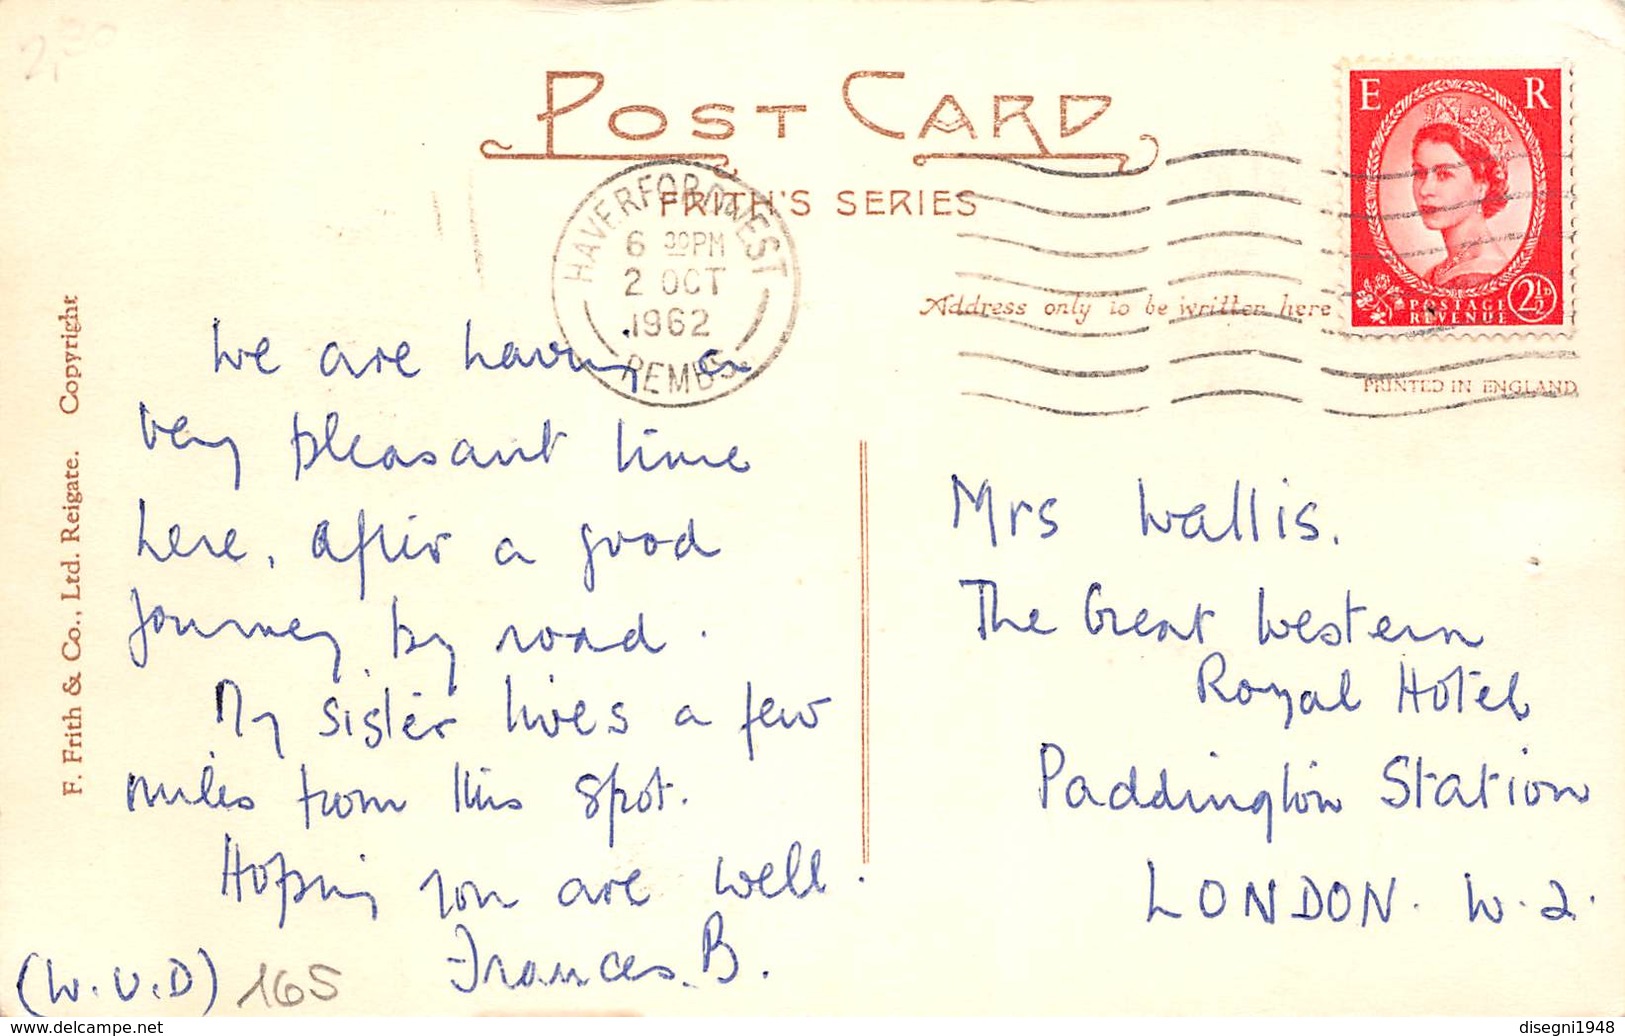 2,30
POST CARD
FRITH'S SERIES
HAVERFORDWEST
6 30PM
2 OCT
1962
PEMBS.
E R
POSTAGE
REVENUE
2½D
Address only to be written here
PRINTED IN ENGLAND
F. Frith & Co., Ltd. Reigate. Copyright
We are having a
very pleasant time
here, after a good
journey by road.
My sister lives a few
miles from this spot.
Hoping you are well.
Frances. B.
(W.V.D) 165
Mrs Wallis.
The Great Western
Royal Hotel
Paddington Station
LONDON. W.2.
delcampe.net
disegni1948